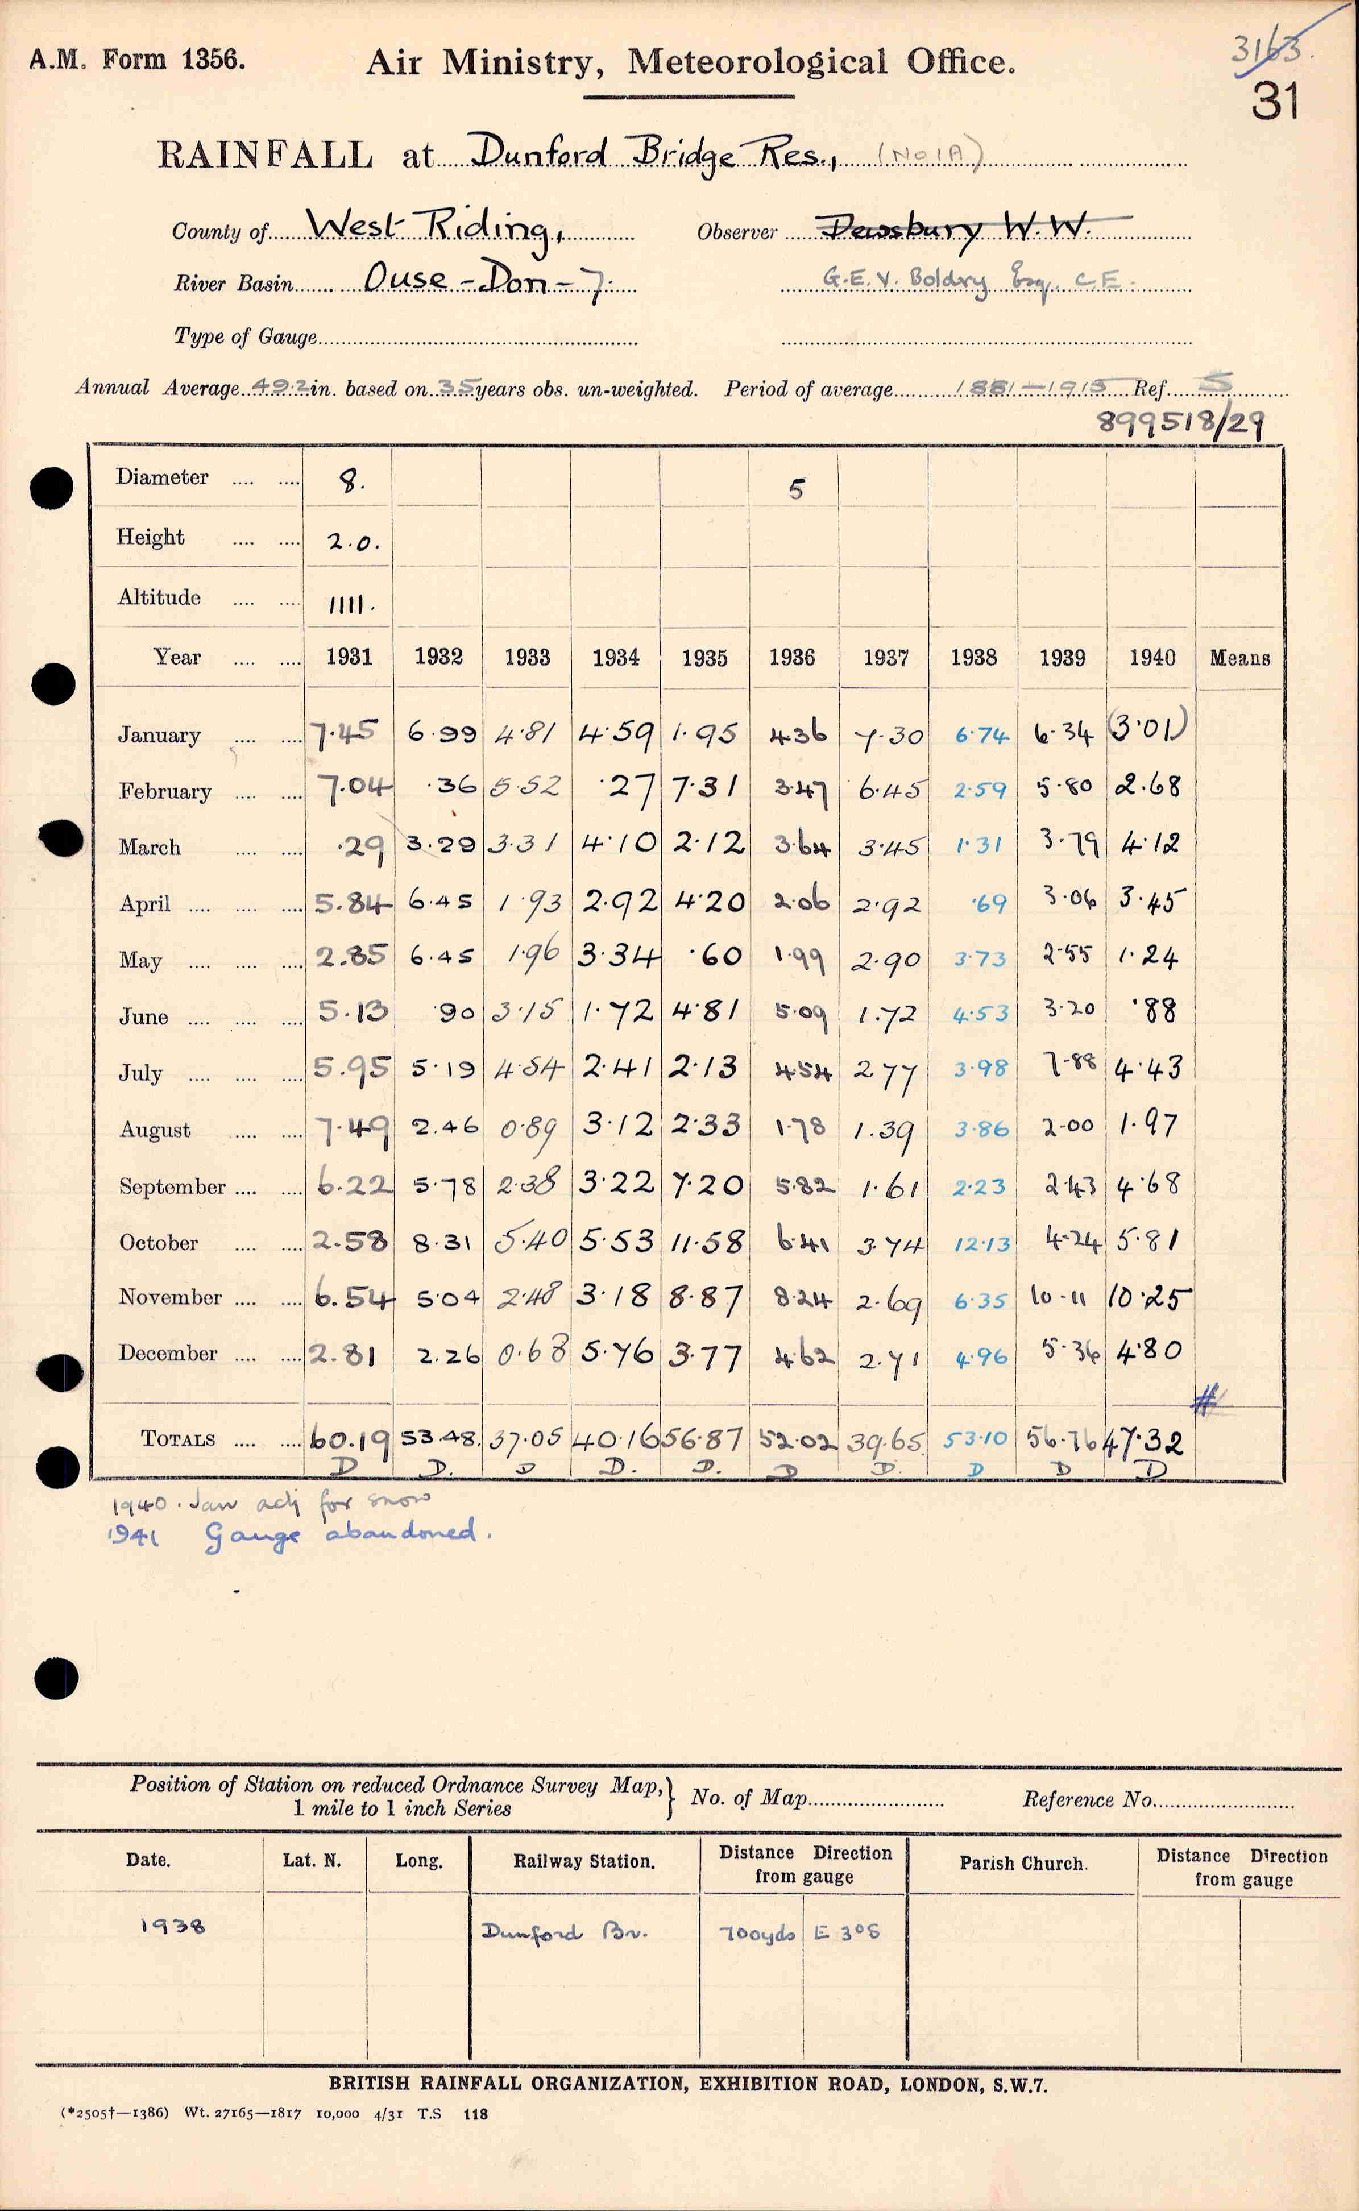 A.M. Form 1356. Air Ministry, Meteorological Office. 3163.
31
RAINFALL at Dunford Bridge Res., (No 1A)
County of West Riding, Observer Dewsbury W.W.
River Basin Ouse - Don - 7. G.E.V. Boldry Esq. C.E.
Type of Gauge
Annual Average 49.2 in. based on 35 years obs. un-weighted. Period of average 1881-1915 Ref. S
899518/29
Diameter 8. 5
Height 2.0.
Altitude 1111.
Year 1931 1932 1933 1934 1935 1936 1937 1938 1939 1940 Means
January 7.45 6.99 4.81 4.59 1.95 4.36 7.30 6.74 6.34 (3.01)
February 7.04 .36 5.52 .27 7.31 3.47 6.45 2.59 5.80 2.68
March .29 3.29 3.31 4.10 2.12 3.64 3.45 1.31 3.79 4.12
April 5.84 6.45 1.93 2.92 4.20 2.06 2.92 .69 3.06 3.45
May 2.85 6.45 1.96 3.34 .60 1.99 2.90 3.73 2.55 1.24
June 5.13 .90 3.15 1.72 4.81 5.09 1.72 4.53 3.20 .88
July 5.95 5.19 4.54 2.41 2.13 4.54 2.77 3.98 7.88 4.43
August 7.49 2.46 0.89 3.12 2.33 1.78 1.39 3.86 2.00 1.97
September 6.22 5.78 2.38 3.22 7.20 5.82 1.61 2.23 2.43 4.68
October 2.58 8.31 5.40 5.53 11.58 6.41 3.74 12.13 4.24 5.81
November 6.54 5.04 2.48 3.18 8.87 8.24 2.69 6.35 10.11 10.25
December 2.81 2.26 0.68 5.76 3.77 4.62 2.71 4.96 5.36 4.80
#
TOTALS 60.19 53.48. 37.05 40.16 56.87 52.02 39.65 53.10 56.76 47.32
D D. D D. D. D D. D D D
1940. Jan adj for snow
1941 Gauge abandoned.
Position of Station on reduced Ordnance Survey Map, } No. of Map Reference No.
1 mile to 1 inch Series
Date. Lat. N. Long. Railway Station. Distance Direction from gauge Parish Church. Distance Direction from gauge
1938 Dunford Br. 700yds E 30S
BRITISH RAINFALL ORGANIZATION, EXHIBITION ROAD, LONDON, S.W.7.
(*2505†—1386) Wt. 27165—1817 10,000 4/31 T.S 118